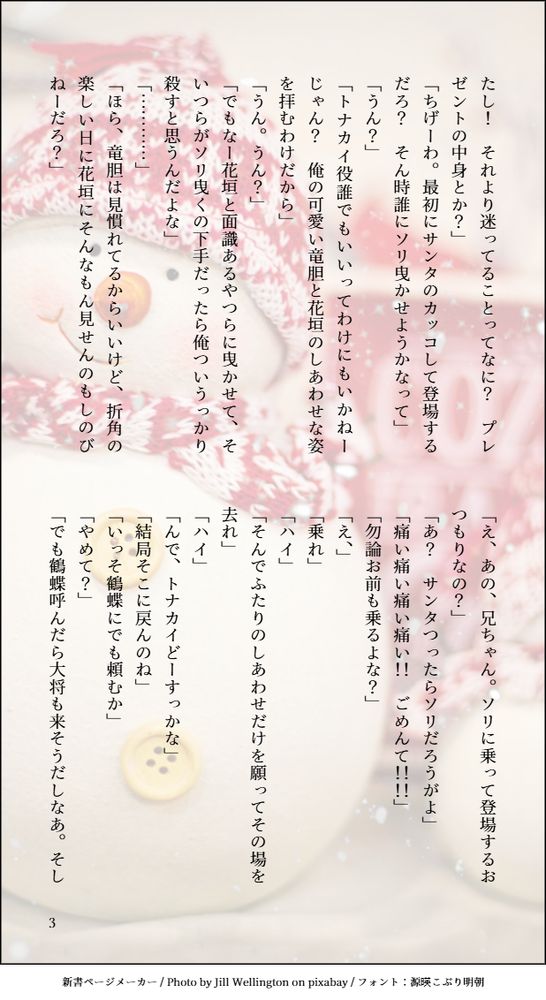 たし！　それより迷ってることってなに？　プレ
ゼントの中身とか？」
「ちげーわ。最初にサンタのカッコして登場する
だろ？　そん時誰にソリ曳かせようかなって」
「うん？」
「トナカイ役誰でもいいってわけにもいかねー
じゃん？　俺の可愛い竜胆と花垣のしあわせな姿
を拝むわけだから」
「うん。うん？」
「でもなー花垣と面識あるやつらに曳かせて、そ
いつらがソリ曳くの下手だったら俺ついうっかり
殺すと思うんだよな」
「…………」
「ほら、竜胆は見慣れてるからいいけど、折角の
楽しい日に花垣にそんなもん見せんのもしのび
ねーだろ？」
「え、あの、兄ちゃん。ソリに乗って登場するお
つもりなの？」
「あ？　サンタつったらソリだろうがよ」
「痛い痛い痛い痛い!!　ごめんて!!!!」
「勿論お前も乗るよな？」
「え、」
「乗れ」
「ハイ」
「そんでふたりのしあわせだけを願ってその場を
去れ」
「ハイ」
「んで、トナカイどーすっかな」
「結局そこに戻んのね」
「いっそ鶴蝶にでも頼むか」
「やめて？」
「でも鶴蝶呼んだら大将も来そうだしなあ。そし
3
新書ページメーカー / Photo by Jill Wellington on pixabay / フォント：源暎こぶり明朝